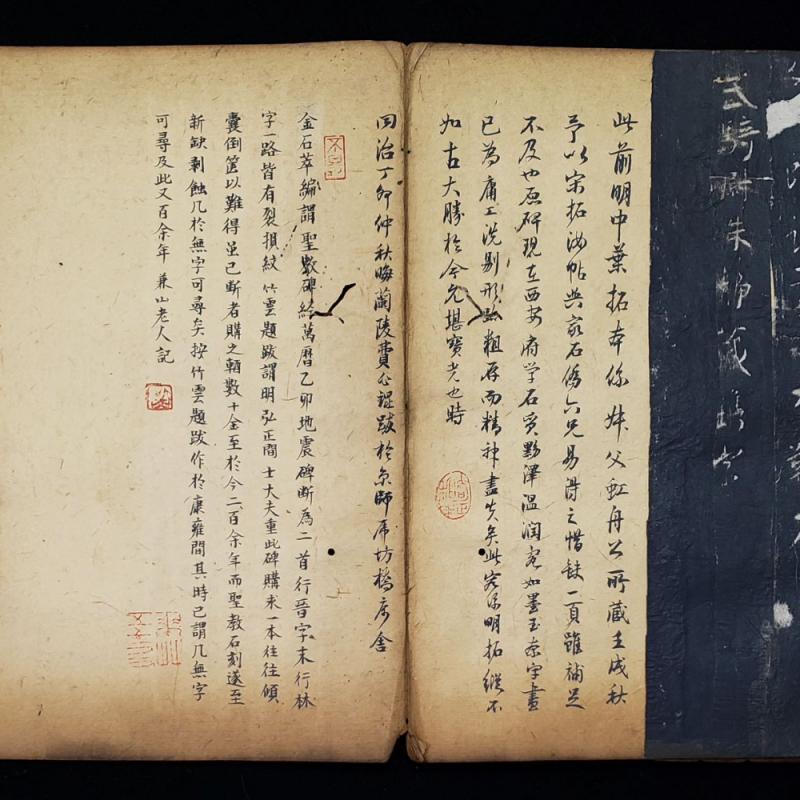 此前明中葉拓本係姊父虹舟公所藏壬戌秋
予以宋拓汝帖與家石僑六兄易得之惜缺一頁雖補足
不及也原碑現在西安府学石質黝澤温润宛如墨玉奈字畫
已為庸工洗剔形跡粗存而精神盡失矣此寔係明拓縱不
如古大勝於今尤堪寶也時
同治丁卯仲秋晦蘭陵費公錕跋於京師虎坊橋厉舍
金石萃編謂聖教碑經萬曆乙卯地震碑斷為二首行晉字末行林
字一路皆有裂損紋竹雲題跋謂明弘正間士大夫重此碑購求一本往往傾
囊倒篋以難得虽已斷者購之輒数十金至於今二百余年而聖教石刻遂至
新缺剥蝕几於無字可尋矣按竹雲題跋作於康雍間其時已謂几無字
可尋及此又百余年 兼山老人記